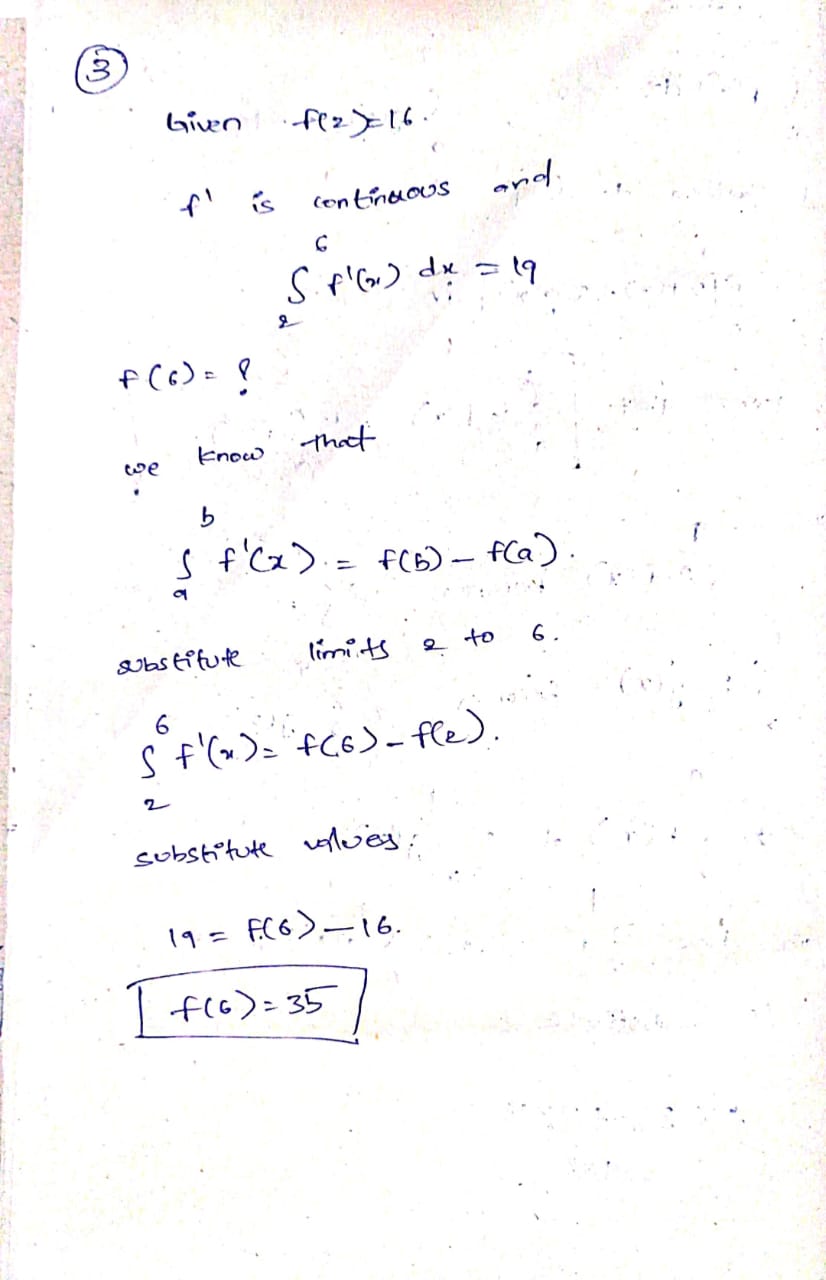 3
Given f(2)=16.
f' is continuous and
6
∫ f'(x) dx = 19
2
f(6) = ?
we know that
b
∫ f'(x) = f(b) – f(a).
a
substitute limits 2 to 6.
6
∫ f'(x) = f(6) – f(2).
2
substitute values:
19 = f(6) – 16.
f(6) = 35